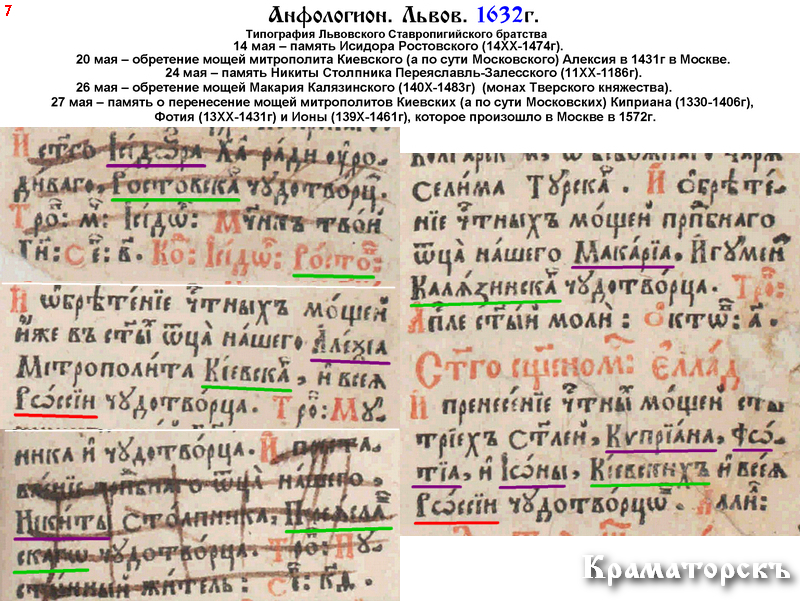 7
Анфологион. Львов. 1632г.
Типография Львовского Ставропигийского братства
14 мая – память Исидора Ростовского (14XX-1474г).
20 мая – обретение мощей митрополита Киевского (а по сути Московского) Алексия в 1431г в Москве.
24 мая – память Никиты Столпника Переяславль-Залесского (11XX-1186г).
26 мая – обретение мощей Макария Калязинского (140X-1483г)  (монах Тверского княжества).
27 мая – память о перенесение мощей митрополитов Киевских (а по сути Московских) Киприана (1330-1406г),
Фотия (13XX-1431г) и Ионы (139X-1461г), которое произошло в Москве в 1572г.
И ст҃гѡ Ісідѡра Х҃а ради оуро-
диваго, Ростовска҃ чудотворц҃.
Тро҃: м҃: Ісідѡ҃: Мч҃нкъ твой
Гн҃: С҃е: в҃. Ко҃: Ісідѡ҃: Росто҃:
И ѡбрѣтенїе чт҃ныхъ мо́щей
и́же въ ст҃ы҃ ѿца̀ на́шего Але́ѯїа
Митрополи́та Кі́евска҃, и̂ всея
Рѡссі́и чудотво́рца. Тро҃: Му-
ника и̂ чудотво́рца. И̂
прп҃бнаго ѿца̀ на́шего,
Ники́ты Сто́лпника, Переясла҃
скагѡ чудотво́рца. Тро҃: Пу-
сты́нный жи́тель: С҃е: к҃д.
Сели́ма Ту́рска҃. И̂ ѻбрѣте́-
нїе чт҃ныхъ мо́щей прп҃бнаго
ѿца̀ на́шего Мака́рїа. И̂гумен҃
Каля́зинска҃ чудотво́рца. Тро҃:
А҃пле ст҃ы́й моли̂: Ѻктѡ҃: а҃.
Ст҃го сщ҃еном҃: Єлла́д
И̂ пренесе́нїе чт҃ны҃ мо́щей ст҃ы
трїе́хъ ст҃лей, Кѵпрїа́на, Фѡ-
тїа, и̂ Іѡ́ны, Кі́евскихъ и̂ все́я
Рѡссі́и чудотво́рцѡ҃. А҃лли҃:
Краматорскъ